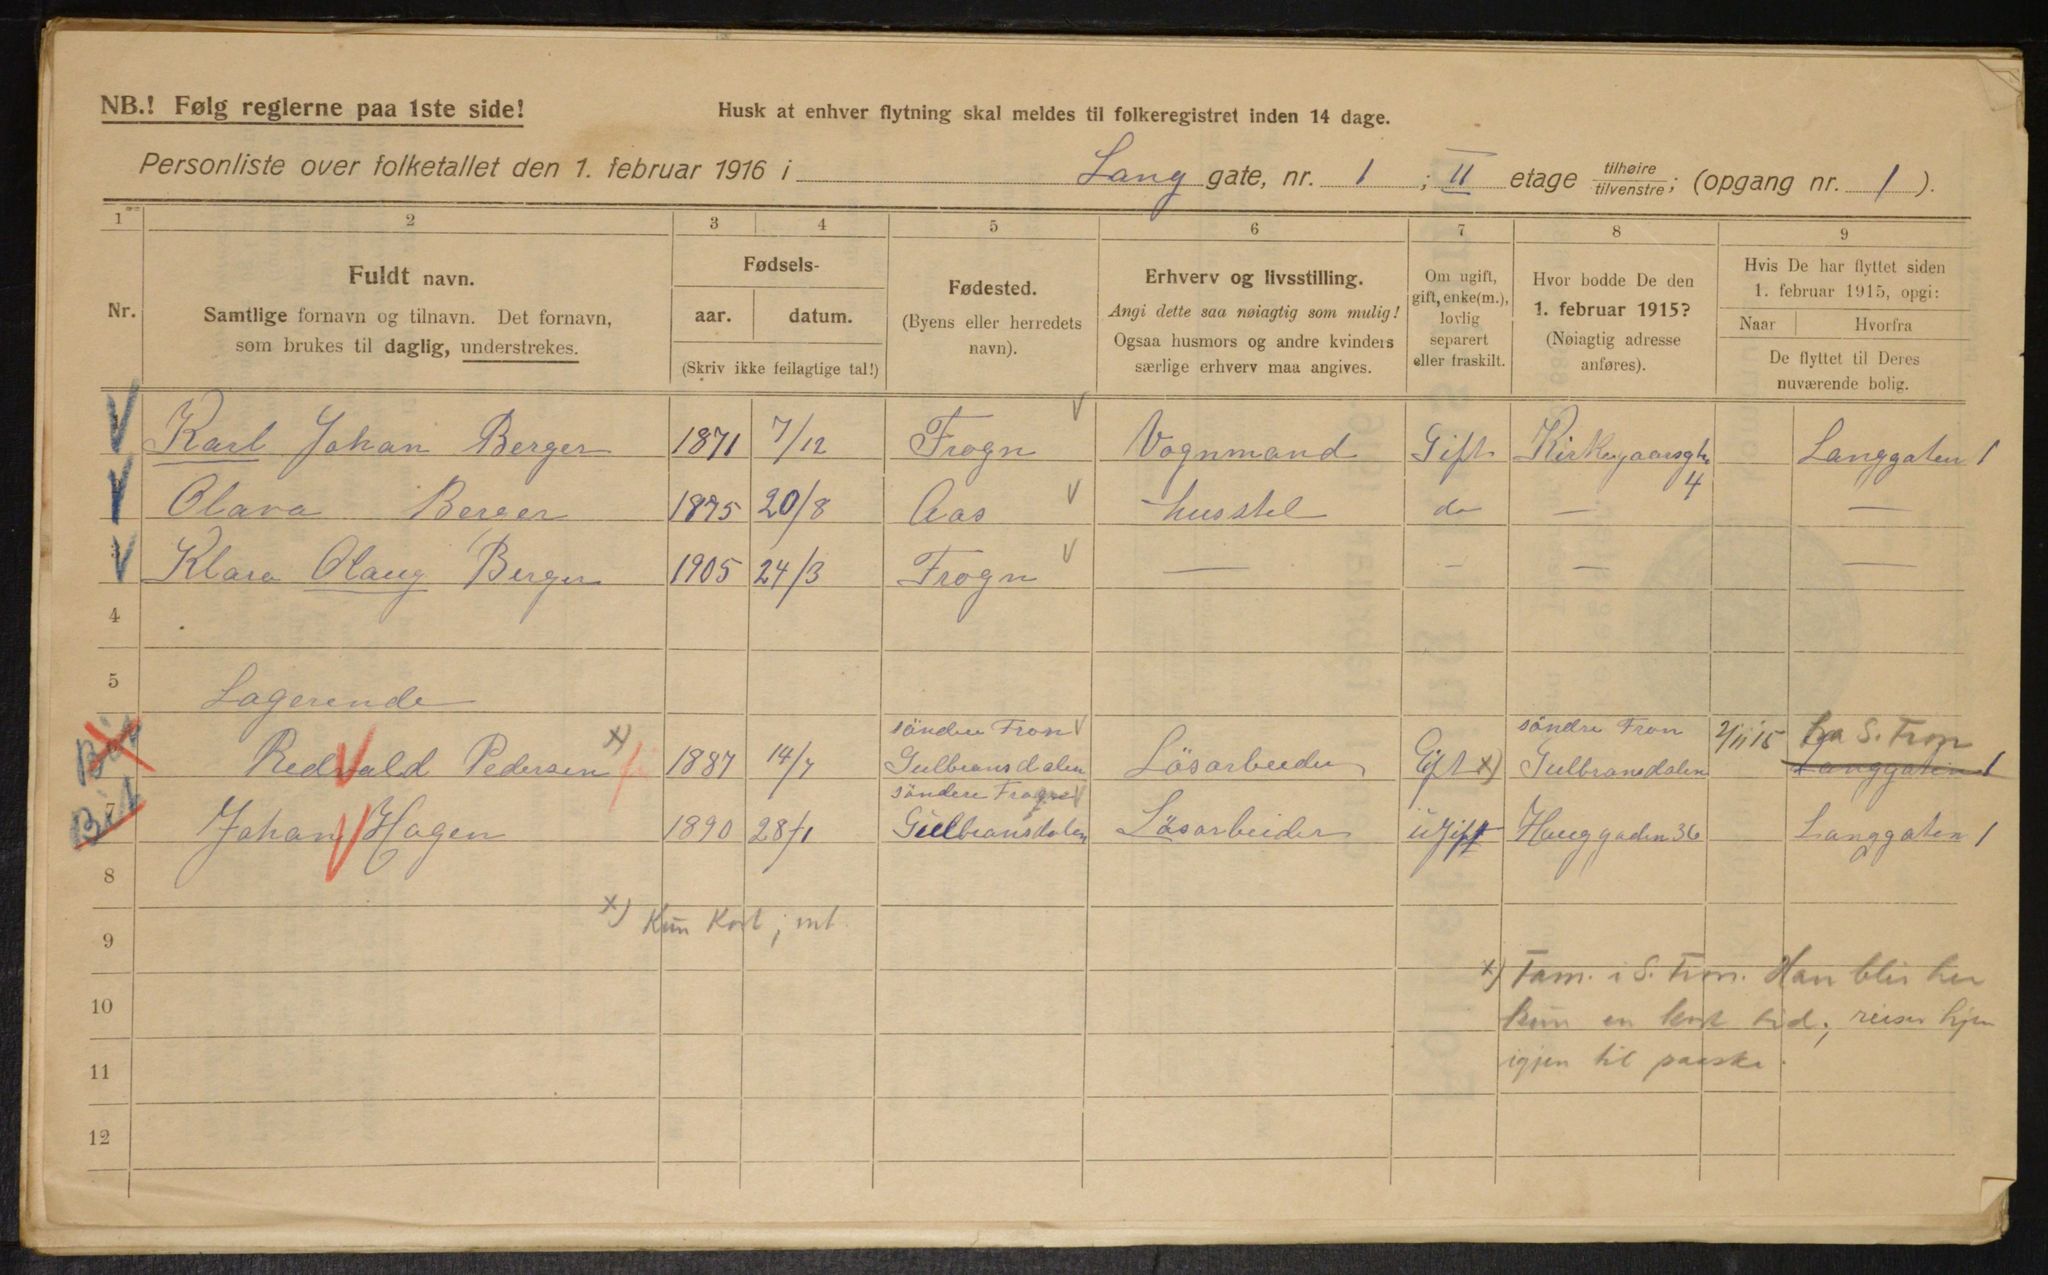 NB.! Følg reglerne paa 1ste side!
Husk at enhver flytning skal meldes til folkeregistret inden 14 dage.
Personliste over folketallet den 1. februar 1916 i Lang gate, nr. 1 ; II etage tilhøire tilvenstre; (opgang nr. 1 ).
1 2 3 4 5 6 7 8 9
Nr.
Fuldt navn.
Samtlige fornavn og tilnavn. Det fornavn,
som brukes til daglig, understrekes.
Fødsels-
aar. datum.
(Skriv ikke feilagtige tal!)
Fødested.
(Byens eller herredets
navn).
Erhverv og livsstilling.
Angi dette saa nøiagtig som mulig!
Ogsaa husmors og andre kvinders
særlige erhverv maa angives.
Om ugift,
gift, enke(m.),
lovlig
separert
eller fraskilt.
Hvor bodde De den
1. februar 1915?
(Nøiagtig adresse
anføres).
Hvis De har flyttet siden
1. februar 1915, opgi:
Naar Hvorfra
De flyttet til Deres
nuværende bolig.
Karl Johan Berger 1871 7/12 Frogn V Vognmand Gift Kirkegaarsgt 4 Langgaten 1
Olava Berger 1875 20/8 Aas V husstel do — —
Klara Olaug Berger 1905 24/3 Frogn V — — — —
4
5 Logerende
Redvald Pedersen x) 1887 14/7 söndre Fron V Gulbransdalen Lösarbeider Gift x) söndre Fron Gulbransdalen 2/11 15 fra S. Fron Langgaten 1
7 Johan Hagen 1890 28/1 söndere Frogn V Gulbransdalen Lösarbeider ugift Hauggaden 36 Langgaten 1
8
9 x) Kun kost,
10
11
12
x) Fam. i S. Fron. Han blir her
kun en kort tid, reiser hjem
igjen til paaske.